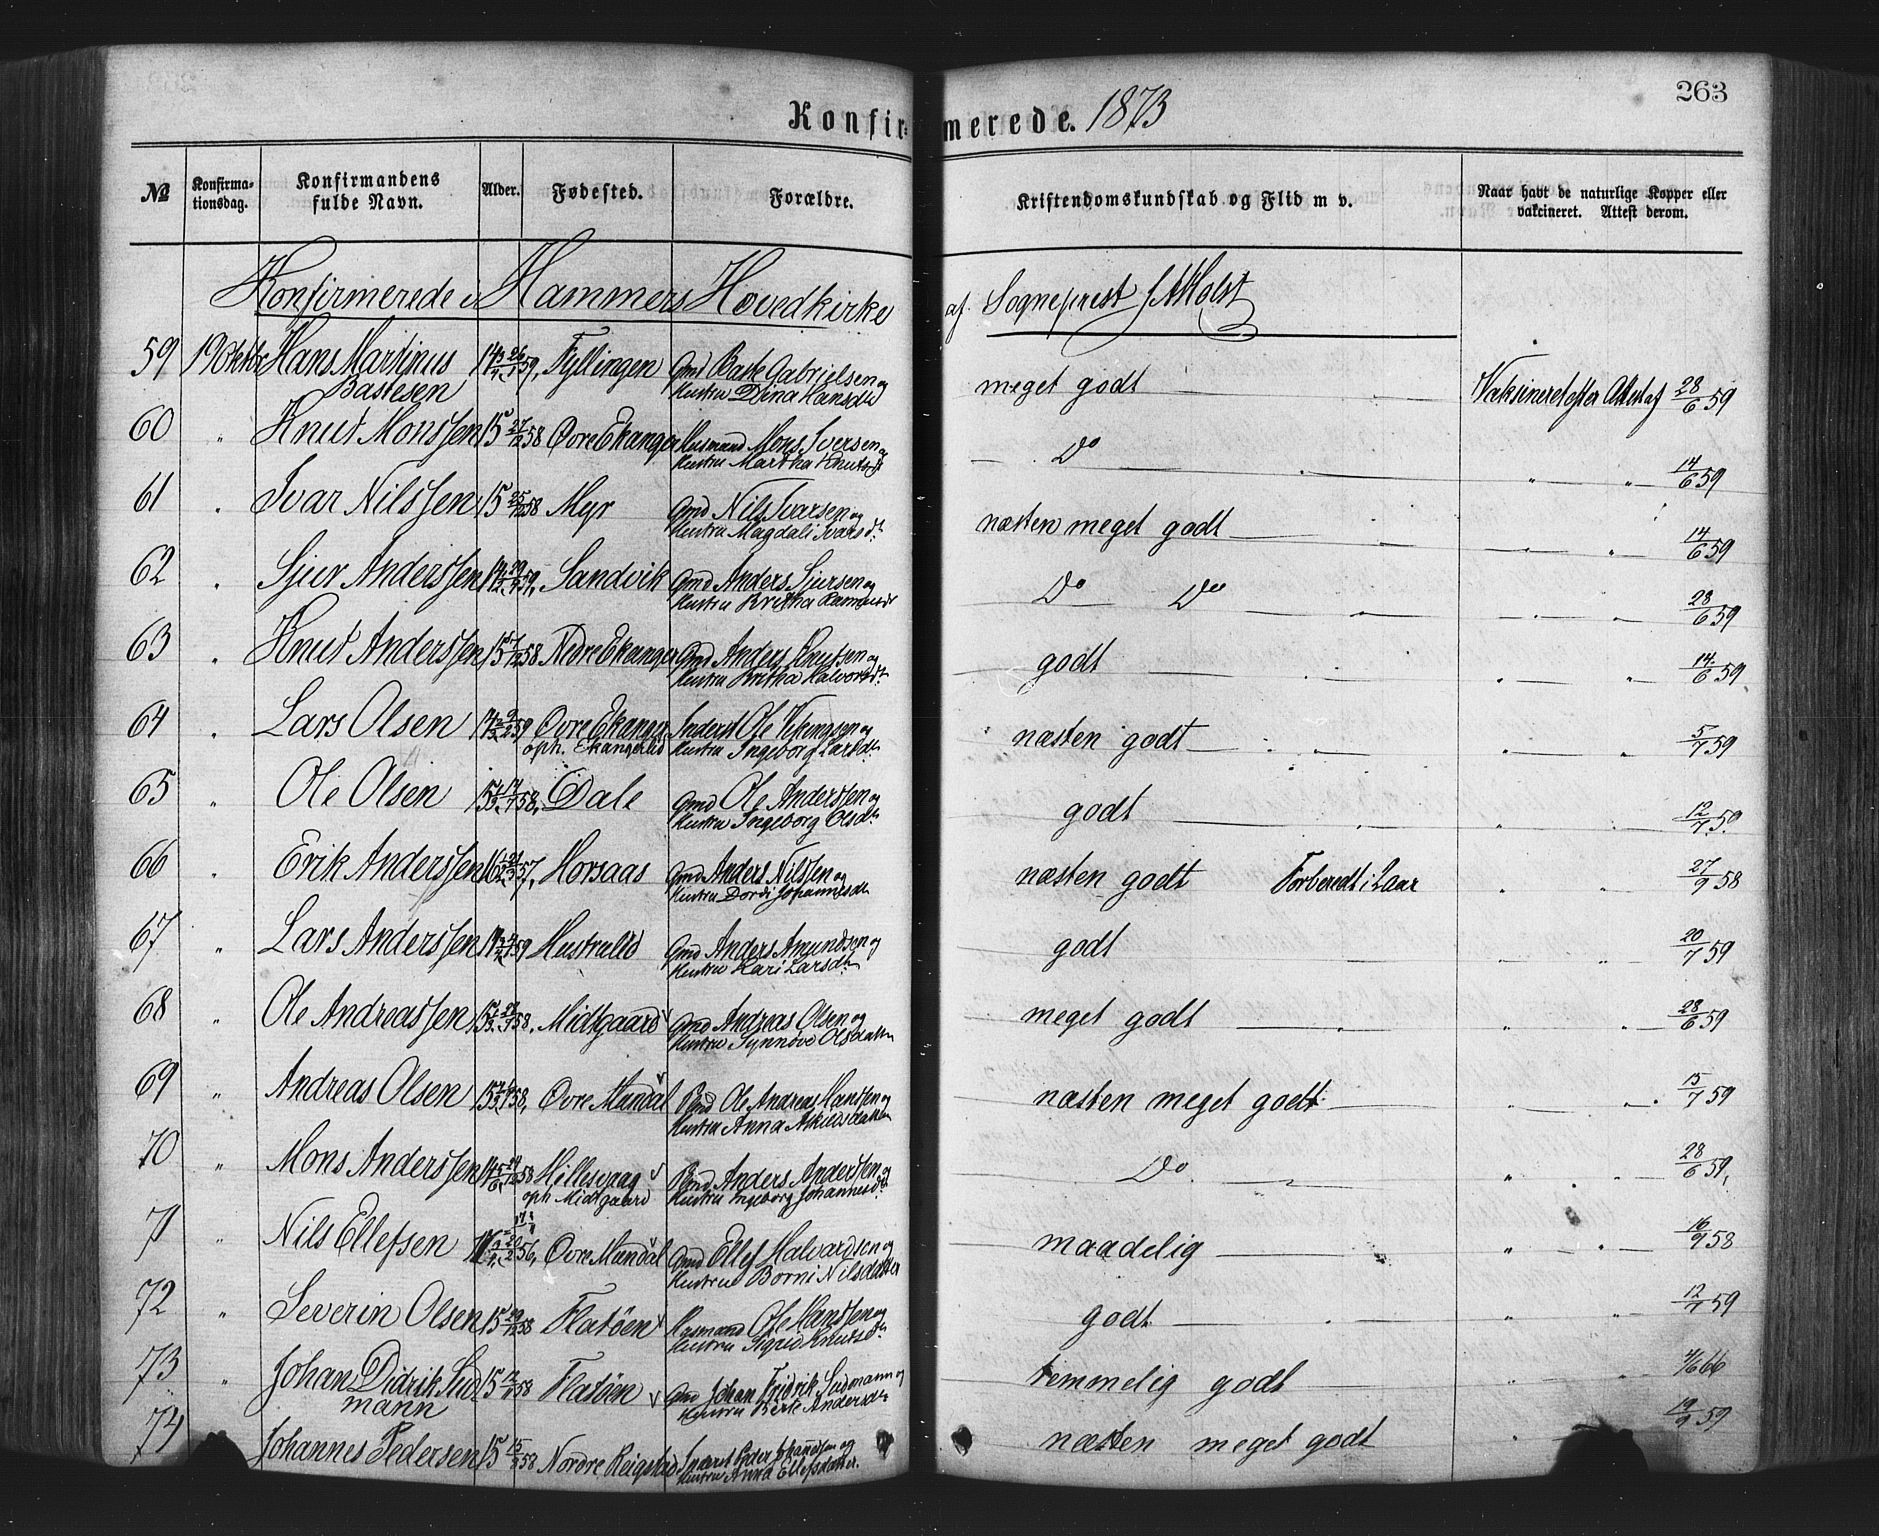 263
Konfir- merede. 1873
№ Konfirma-tionsdag. Konfirmandens fulde Navn. Alder. Fødested. Forældre. Kristendomskundskab og Flid m v. Naar havt de naturlige Kopper eller vakcineret. Attest derom.
Konfirmerede i Hammers Hovedkirke af Sogneprest Holst
59 19 Oktbr Hans Martinus 59, Fyllingen Gmd Baste Gabrielsen og
Bastesen Hustru Dina Hansdt meget godt Vaksineret efter Attest af 28/6 59
60 " Knut Monssen 15 27/12 58 Øvre Ekanger Husmand Mons Iversen og
Hustru Martha Knutsdt Do " " 14/6 59
61 " Ivar Nilssen 15 25/12 58 Myr Gmd Nils Ivarsen og
Hustru Magdali Ivarsdt næsten meget godt " " 14/6 59
62 " Sjur Anderssen 59, Sandvik Gmd Anders Sjursen og
Hustru Britha Do Do " " 28/6 59
63 " Knut Anderssen 58 Nedre Ekanger Gmd Anders Knutsen og
Hustru Britha Halvorsdt godt " " 14/6 59
64 " Lars Olsen 59 Øvre Ekanger Inderst Ole Vikingsen og
oph. Ekangerlid Hustru Ingeborg Larsdt næsten godt " " 5/7 59
65 " Ole Olsen 58, Dale Gmd Ole Anderssen og
Hustru Ingeborg Olsdt godt " " 12/7 59
66 " Erik Anderssen 57, Horsaas Gmd Anders Nilssen og
Hustru Dordi Johannesdt næsten godt Forberedt i 2 aar " " 27/9 58
67 " Lars Anderssen 59 Gmd Anders Amundsen og
Hustru Kari Larsdt godt " " 20/7 59
68 " Ole Andreassen 58, Midtgaard Gmd Andreas Olsen og
Hustru Synnøve Olsdatter meget godt " " 28/6 59
69 " Andreas Olsen 58, Øvre Mundal Gmd Ole Andreas Hanssen og
Hustru Anna næsten meget godt " " 15/7 59
70 " Mons Anderssen 58 Hillesvaag Gmd Anders Anderssen og
oph Midtgaard Hustru Ingeborg Johannesdt Do " " 28/6 59,
71 " Nils Ellefsen 56, Øvre Mundal Gmd Ellef Halvardsen og
Hustru Borni Nilsdatter maadelig " " 16/9 58
72 " Severin Olsen 58 Flatøen Husmand Ole Hanssen og
Hustru Sigrid Knutsdt godt " " 12/7 59
73 " Johan Didrik Sud 58 Flatøen Gmd Johan Fridrik Sudmann og
mann Hustru Berte Andersdt temmelig godt " " 4/6 66
74 Johannes Pedersen 58 Nordre Reigstad Inderst Peder og
Hustru Anna Ellefsdatter. næsten meget godt " 19/9 59